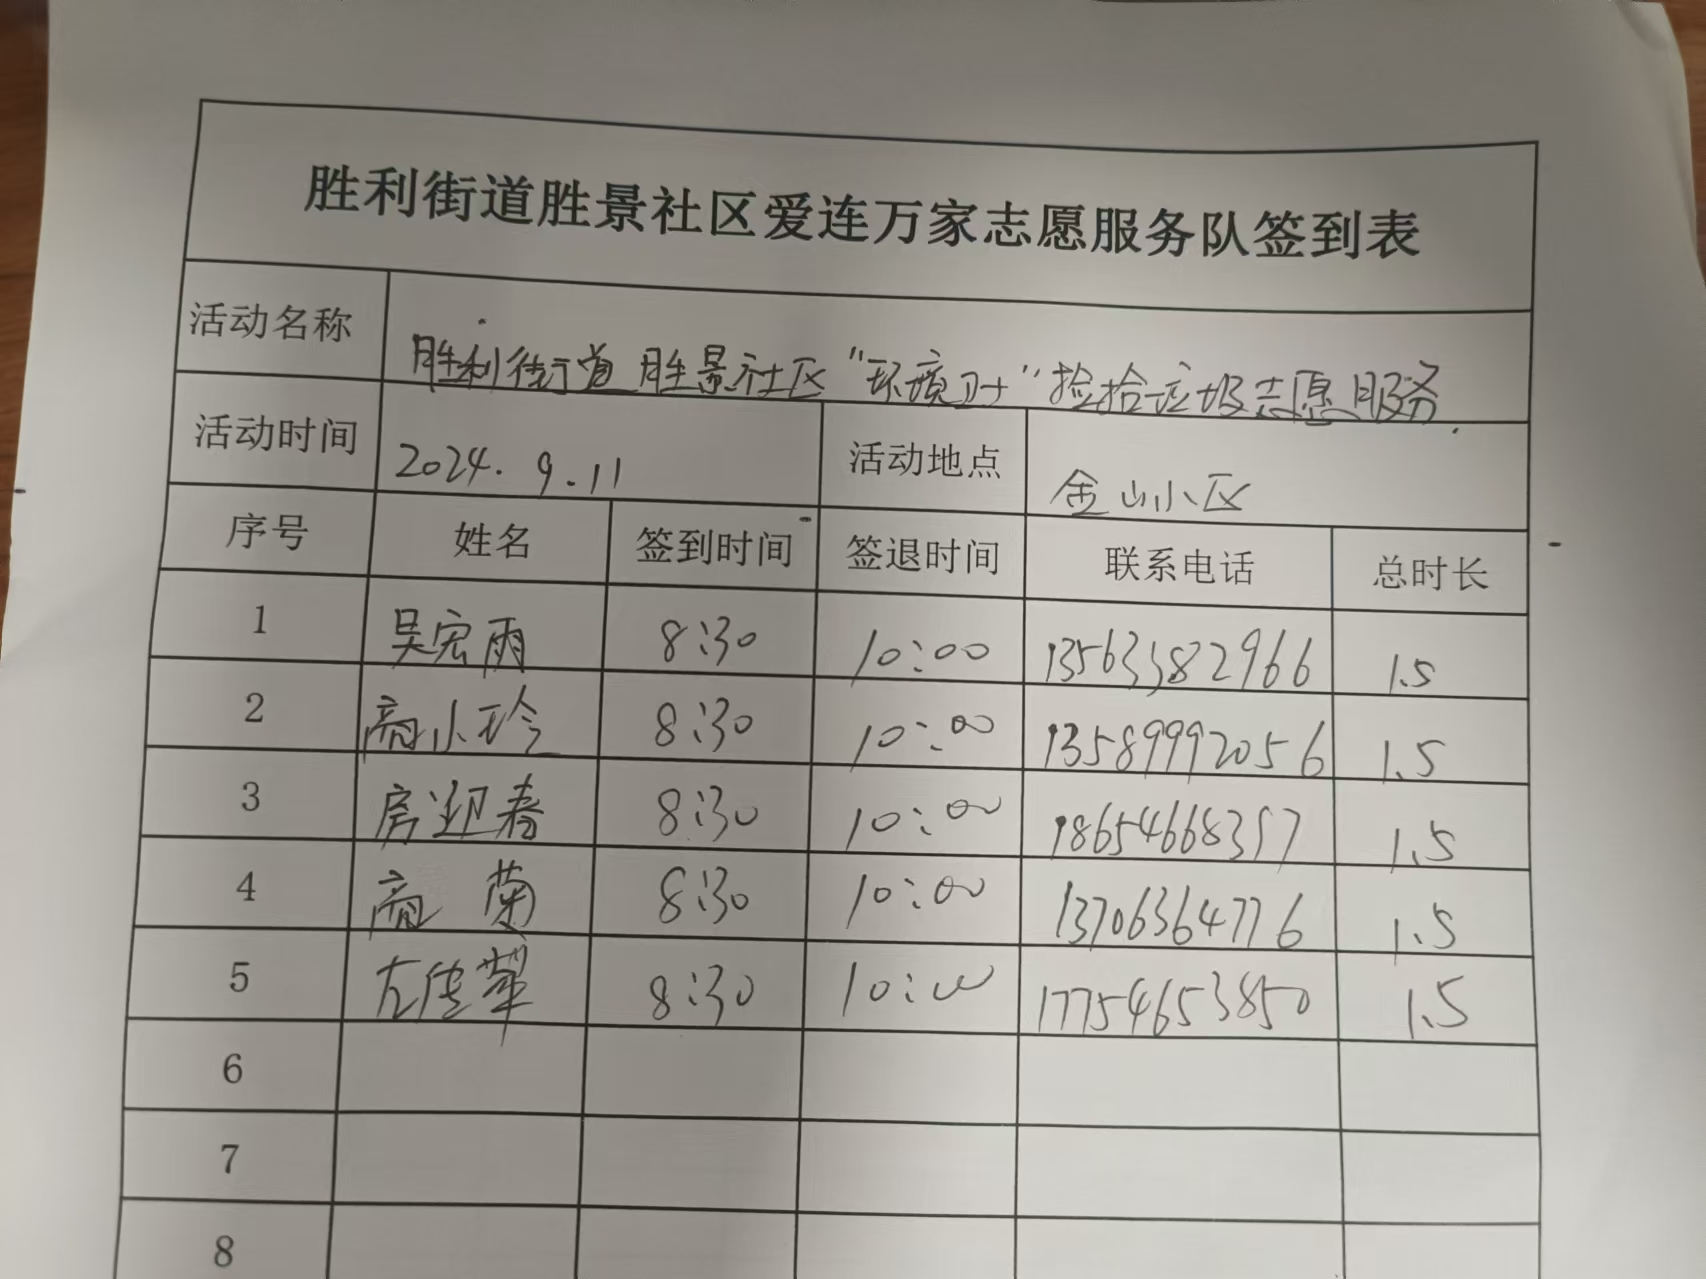 胜利街道胜景社区爱连万家志愿服务队签到表
活动名称 胜利街道胜景社区“环境卫士”捡拾垃圾志愿服务.
活动时间 2024.9.11 活动地点 金山小区
序号 姓名 签到时间 签退时间 联系电话 总时长
1 吴宏雨 8:30 10:00 13563382966 1.5
2 高小珍 8:30 10:00 13589992056 1.5
3 房迎春 8:30 10:00 18654668357 1.5
4 高菊 8:30 10:00 13706364776 1.5
5 左佳翠 8:30 10:00 17754653850 1.5
6
7
8